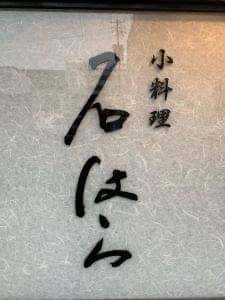 小料理
石はら